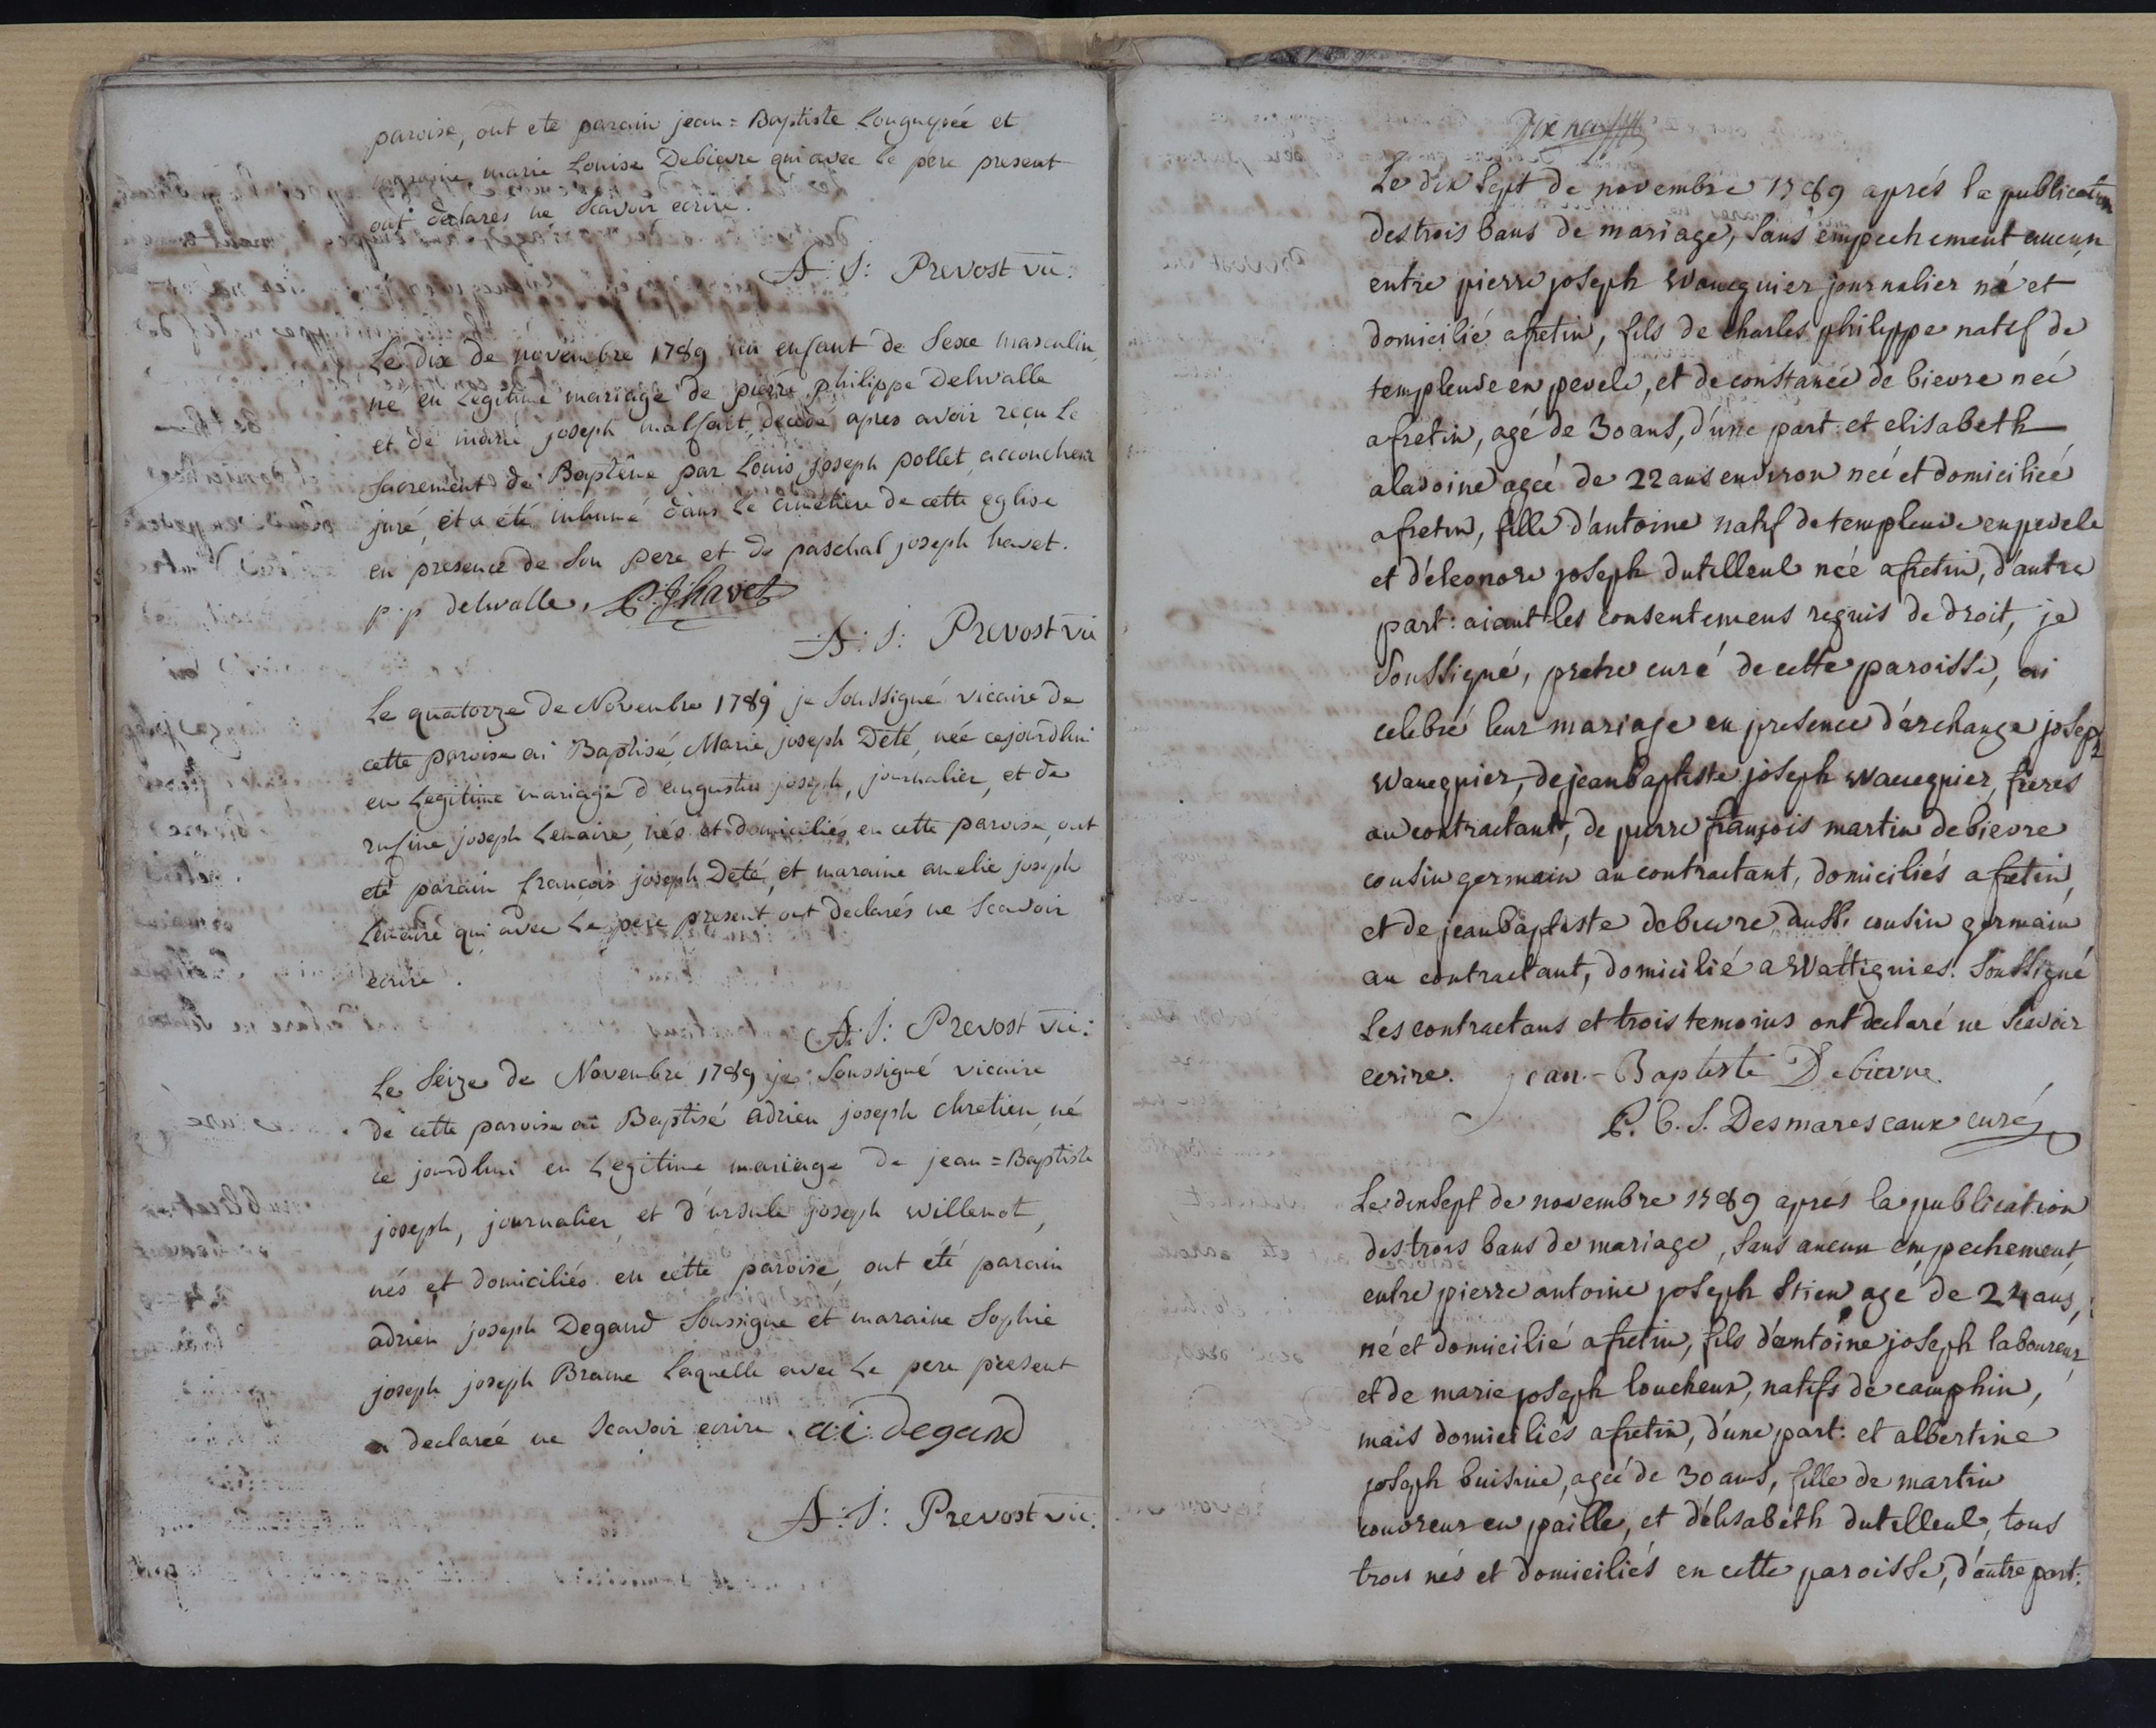 paroise, ont ete parain jean = Baptiste Longuepée et
maraine marie Louise Debievre qui avec le pere present
ont declarés ne Scavoir ecrire.
A: J: Prevost vic:
Le dix de novembre 1789 un enfant de Sexe masculin,
né en Legitime mariage de pierre philippe Delwalle
et de marie joseph malfait, decedé apres avoir reçu Le
Sacrement de Baptême par Louis joseph pollet accoucheur
juré, et a été inhumé dans le cimetiere de cette eglise
en presence de Son pere et de paschal joseph havet.
p. p delwalle. P. J. havet
A: J: Prevost vic
Le quatorze de Novembre 1789 je Soussigné vicaire de
cette paroise ai Baptisé Marie joseph Dété, née cejourdhui
en Legitime mariage d'augustin joseph, journalier, et de
rufine joseph Lemaire, nés et domiciliés en cette paroise, ont
eté parain françois joseph Deté, et maraine amelie joseph
Lemaire qui avec Le pere present ont declarés ne Scavoir
ecrire.
A: J: Prevost vic:
Le Seize de Novembre 1789 je Soussigné vicaire
de cette paroise ai Baptisé adrien joseph chretien, né
ce jourdhui en Legitime mariage de jean = Baptiste
joseph, journalier, et d'ursule joseph willemot,
nés et domiciliés en cette paroise, ont été parain
adrien joseph Degand Soussigne et maraine Sophie
joseph joseph Brame Laquelle avec Le pere present
a declareé ne Scavoir ecrire. a: i: degand
A: J: Prevost vic:
Dix neuf
Le dix Sept de novembre 1789 aprés la publication
des trois bans de mariage, Sans empechement aucun
entre pierre joseph Waucquier journalier né et
domicilié a fretin, fils de charles philippe natif de
templeuve en pevele, et de constance de bievre neé
a fretin, agé de 30 ans, d'une part: et elisabeth
aladoine ageé de 22 ans environ neé et domicilieé
a fretin, fille d'antoine natif de templeuve en pevele
et d'eleonore joseph dutilleul née a fretin, d'autre
part: aiant les consentemens requis de droit, je
Soussigné, pretre curé de cette paroisse, ai
celebré leur mariage en presence d'archange joseph
Waucquier, de jean baptiste joseph Waucquier, freres
au contractant, de pierre françois martin debievre
cousin germain au contractant, domiciliés a fretin,
et de jean baptiste debievre aussi cousin germain
au contractant, domicilié a Wattignies. Soussigné
Les contractans et trois temoins ont declaré ne Scavoir
ecrire. jean-Baptiste Debievre.
P. C. J. Desmarescaux curé
Le dix Sept de novembre 1789 aprés la publication
des trois bans de mariage, Sans aucun empechement,
entre pierre antoine joseph Stien, agé de 24 ans,
né et domicilié a fretin, fils d'antoine joseph laboureur
et de marie joseph loucheur, natifs de camphin,
mais domiciliés a fretin, d'une part: et albertine
joseph buisine, ageé de 30 ans, fille de martin
couvreur en paille, et d'elisabeth dutilleul, tous
trois nés et domiciliés en cette paroisse, d'autre part: